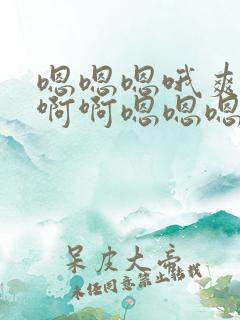 嗯嗯嗯哦爽
啊啊嗯嗯嗯
呆皮大帝
未经同意禁止转载